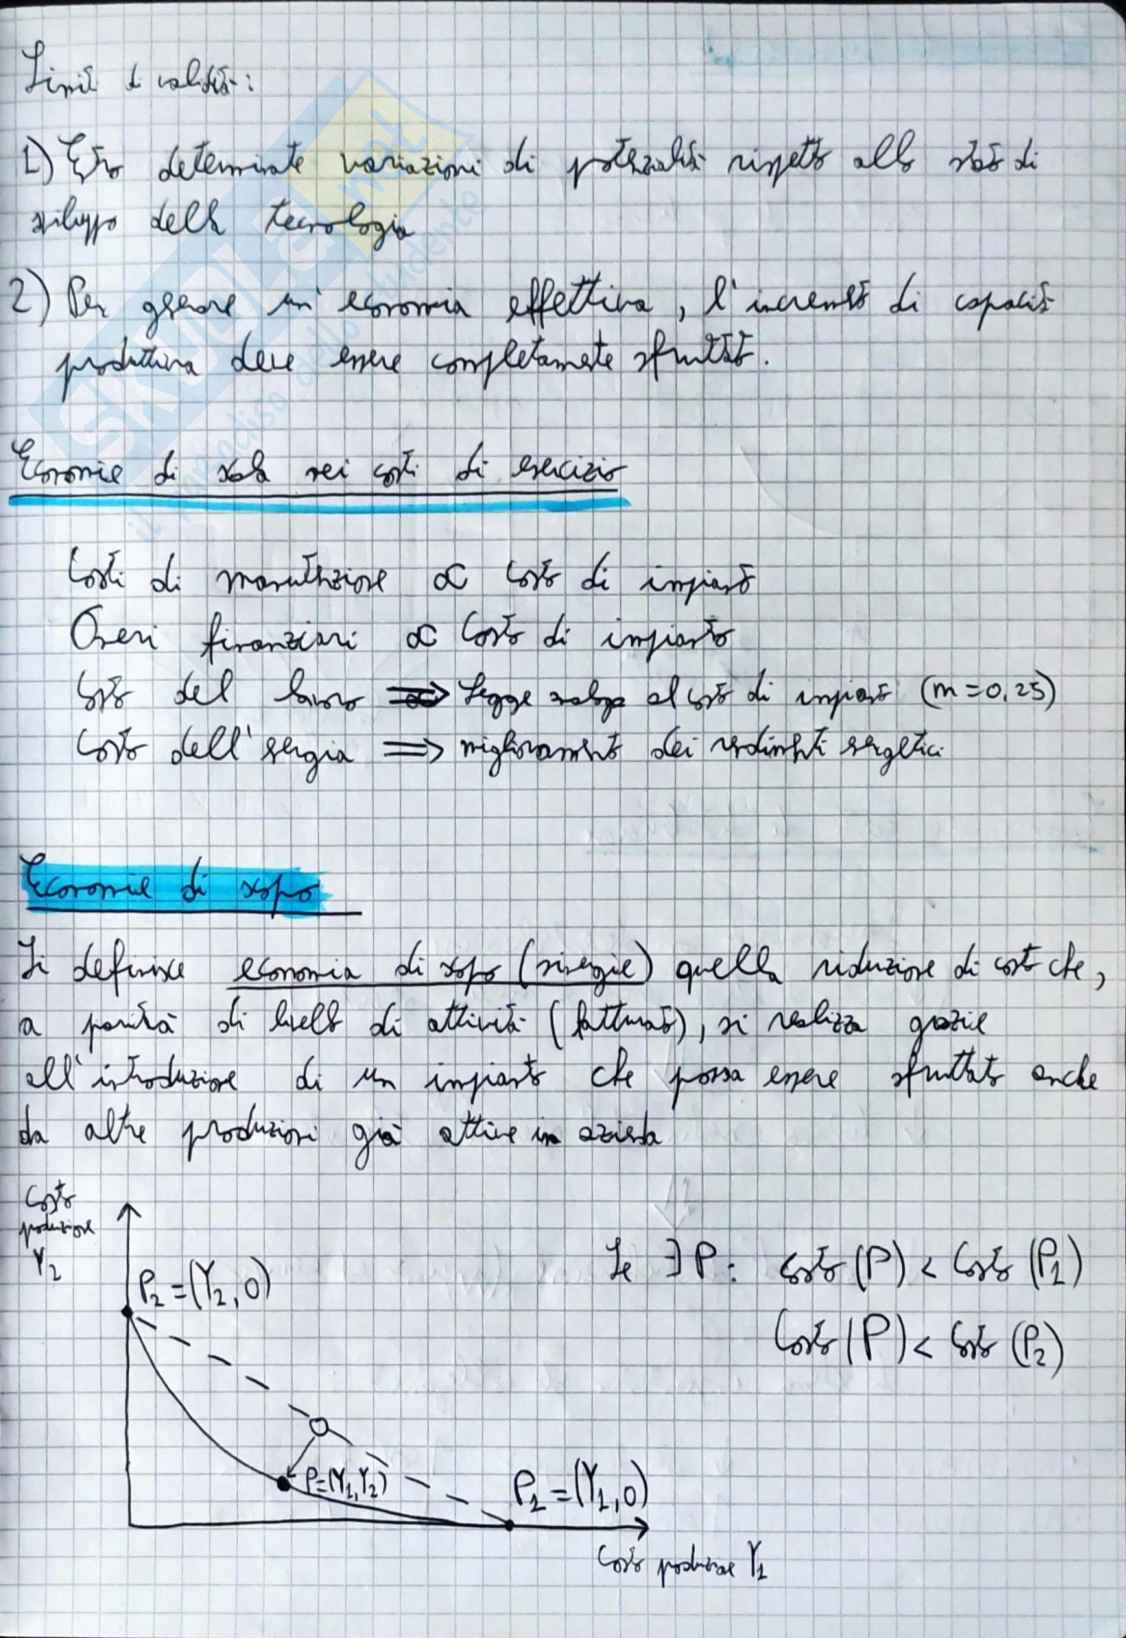 Limiti di validità:
1) Entro determinate variazioni di potenzialità rispetto allo stato di
sviluppo della tecnologia
2) Per generare un'economia effettiva, l'incremento di capacità
produttiva deve essere completamente sfruttato.
Economie di scala nei costi di esercizio
Costi di manutenzione ∝ costo di impianto
Oneri finanziari ∝ Costo di impianto
Costo del lavoro ⇒ Legge analoga al costo di impianto (m=0,25)
Costo dell'energia ⇒ miglioramento dei rendimenti energetici
Economie di scopo
Si definisce economia di scopo (sinergie) quella riduzione di costo che,
a parità di livello di attività (fatturato), si realizza grazie
all'introduzione di un impianto che possa essere sfruttato anche
da altre produzioni già attive in azienda
Costo
produzione
Y₂
P₂=(Y₂,0)
Se ∃P: Costo (P) < Costo (P₁)
Costo (P) < Costo (P₂)
P=(Y₁,Y₂)
P₁=(Y₁,0)
Costo produzione Y₁
SKUOLA.net
il paradiso dello studente